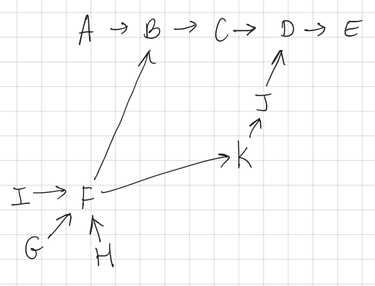 A → B → C → D → E
J
K
I → F
G
H